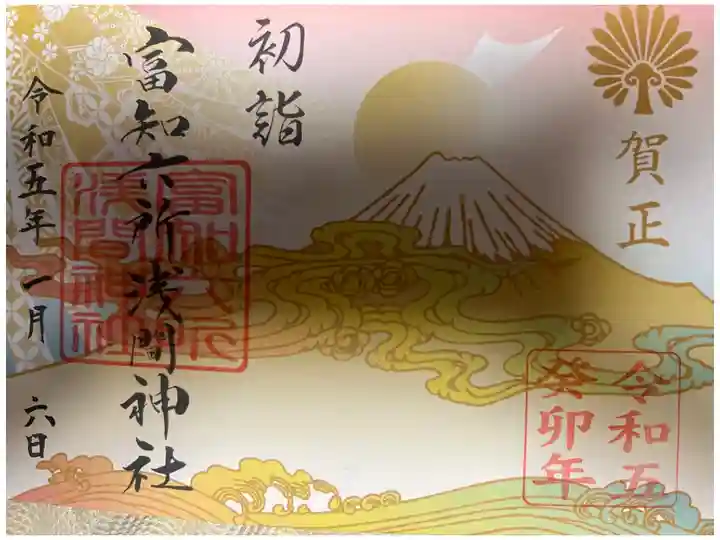 賀正
令和五
癸卯年
初詣
富知六所浅間神社
富知六所
浅間神社
令和五年 一月 六日